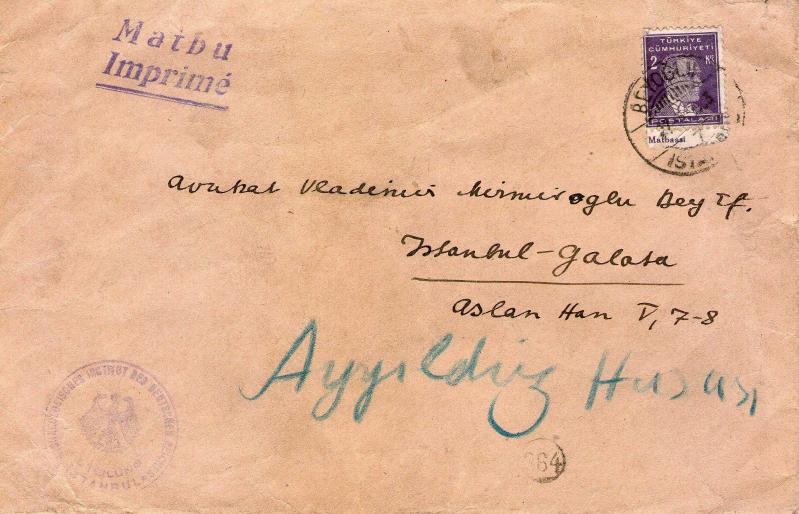 Matbu
Imprimé
TÜRKİYE
CÜMHURİYETİ
2 KS
POSTALARI
Matbaası
BEYOĞLU
Avukat Vladimir Mirmiroglu Bey Ef.
Istanbul-Galata
Aslan Han V, 7-8
Ayyıldız Hususi
INSTITUT DES DEUTSCHEN REICHES
ABTEILUNG
ISTANBUL